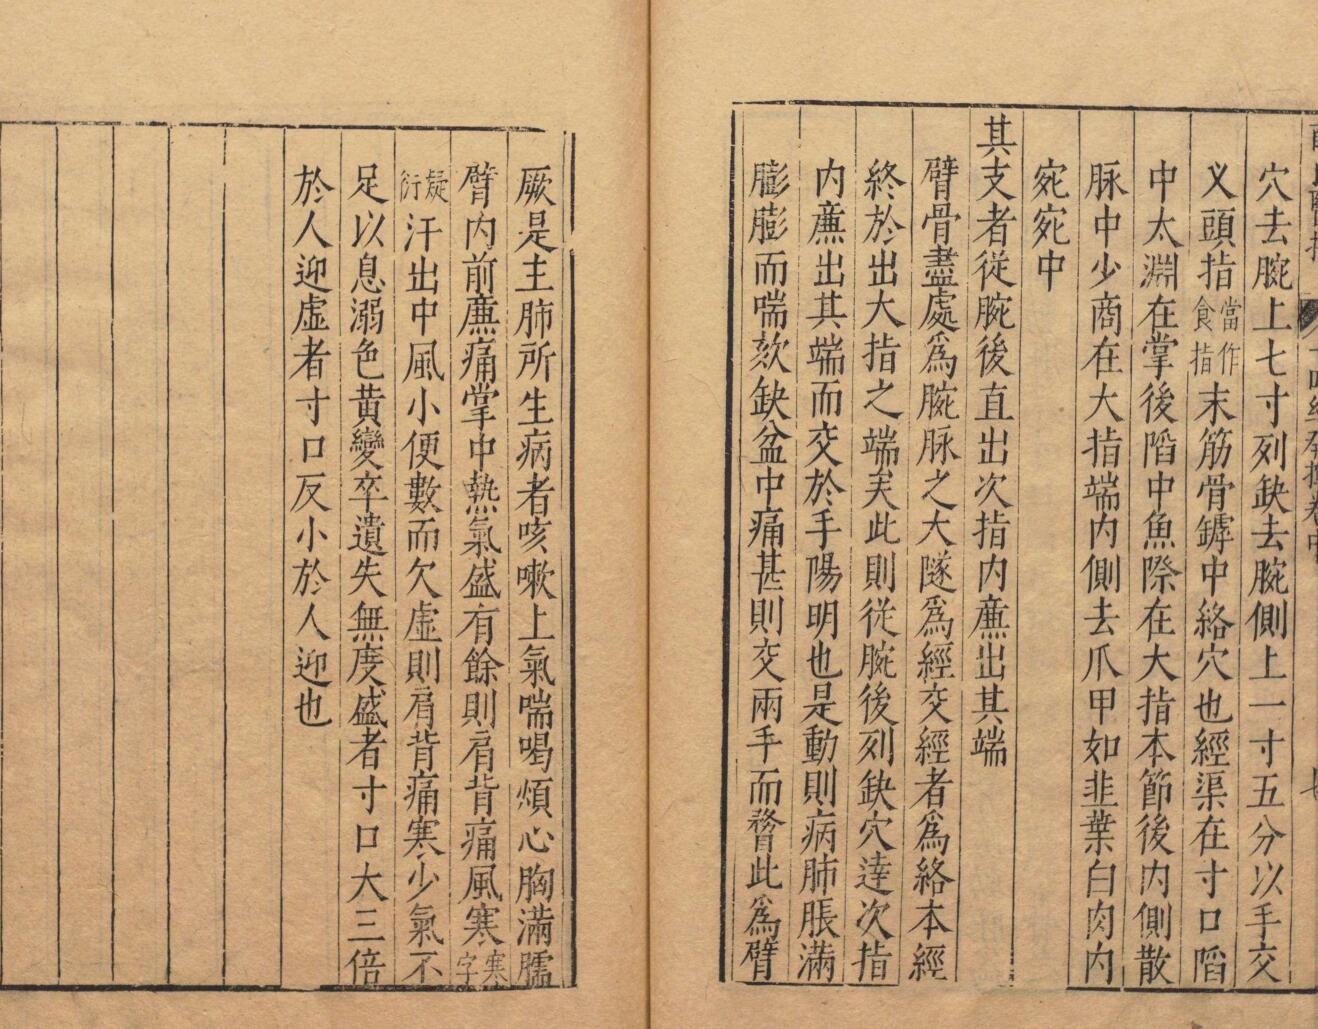 穴去腕上七寸列缺去腕側上一寸五分以手交
义頭指當作食指末筋骨罅中絡穴也經渠在寸口陷
中太淵在掌後陷中魚際在大指本節後内側散
脉中少商在大指端内側去爪甲如韭葉白肉内
宛宛中
其支者從腕後直出次指内廉出其端
臂骨盡處爲腕脉之大隧爲經交經者爲絡本經
終於出大指之端矣此則從腕後列缺穴達次指
内廉出其端而交於手陽明也是動則病肺脹滿
膨膨而喘欬缺盆中痛甚則交兩手而瞀此爲臂
厥是主肺所生病者咳嗽上氣喘喝煩心胸滿臑
臂内前廉痛掌中熱氣盛有餘則肩背痛風寒寒字
疑衍汗出中風小便數而欠虛則肩背痛寒少氣不
足以息溺色黄變卒遺失無度盛者寸口大三倍
於人迎虛者寸口反小於人迎也